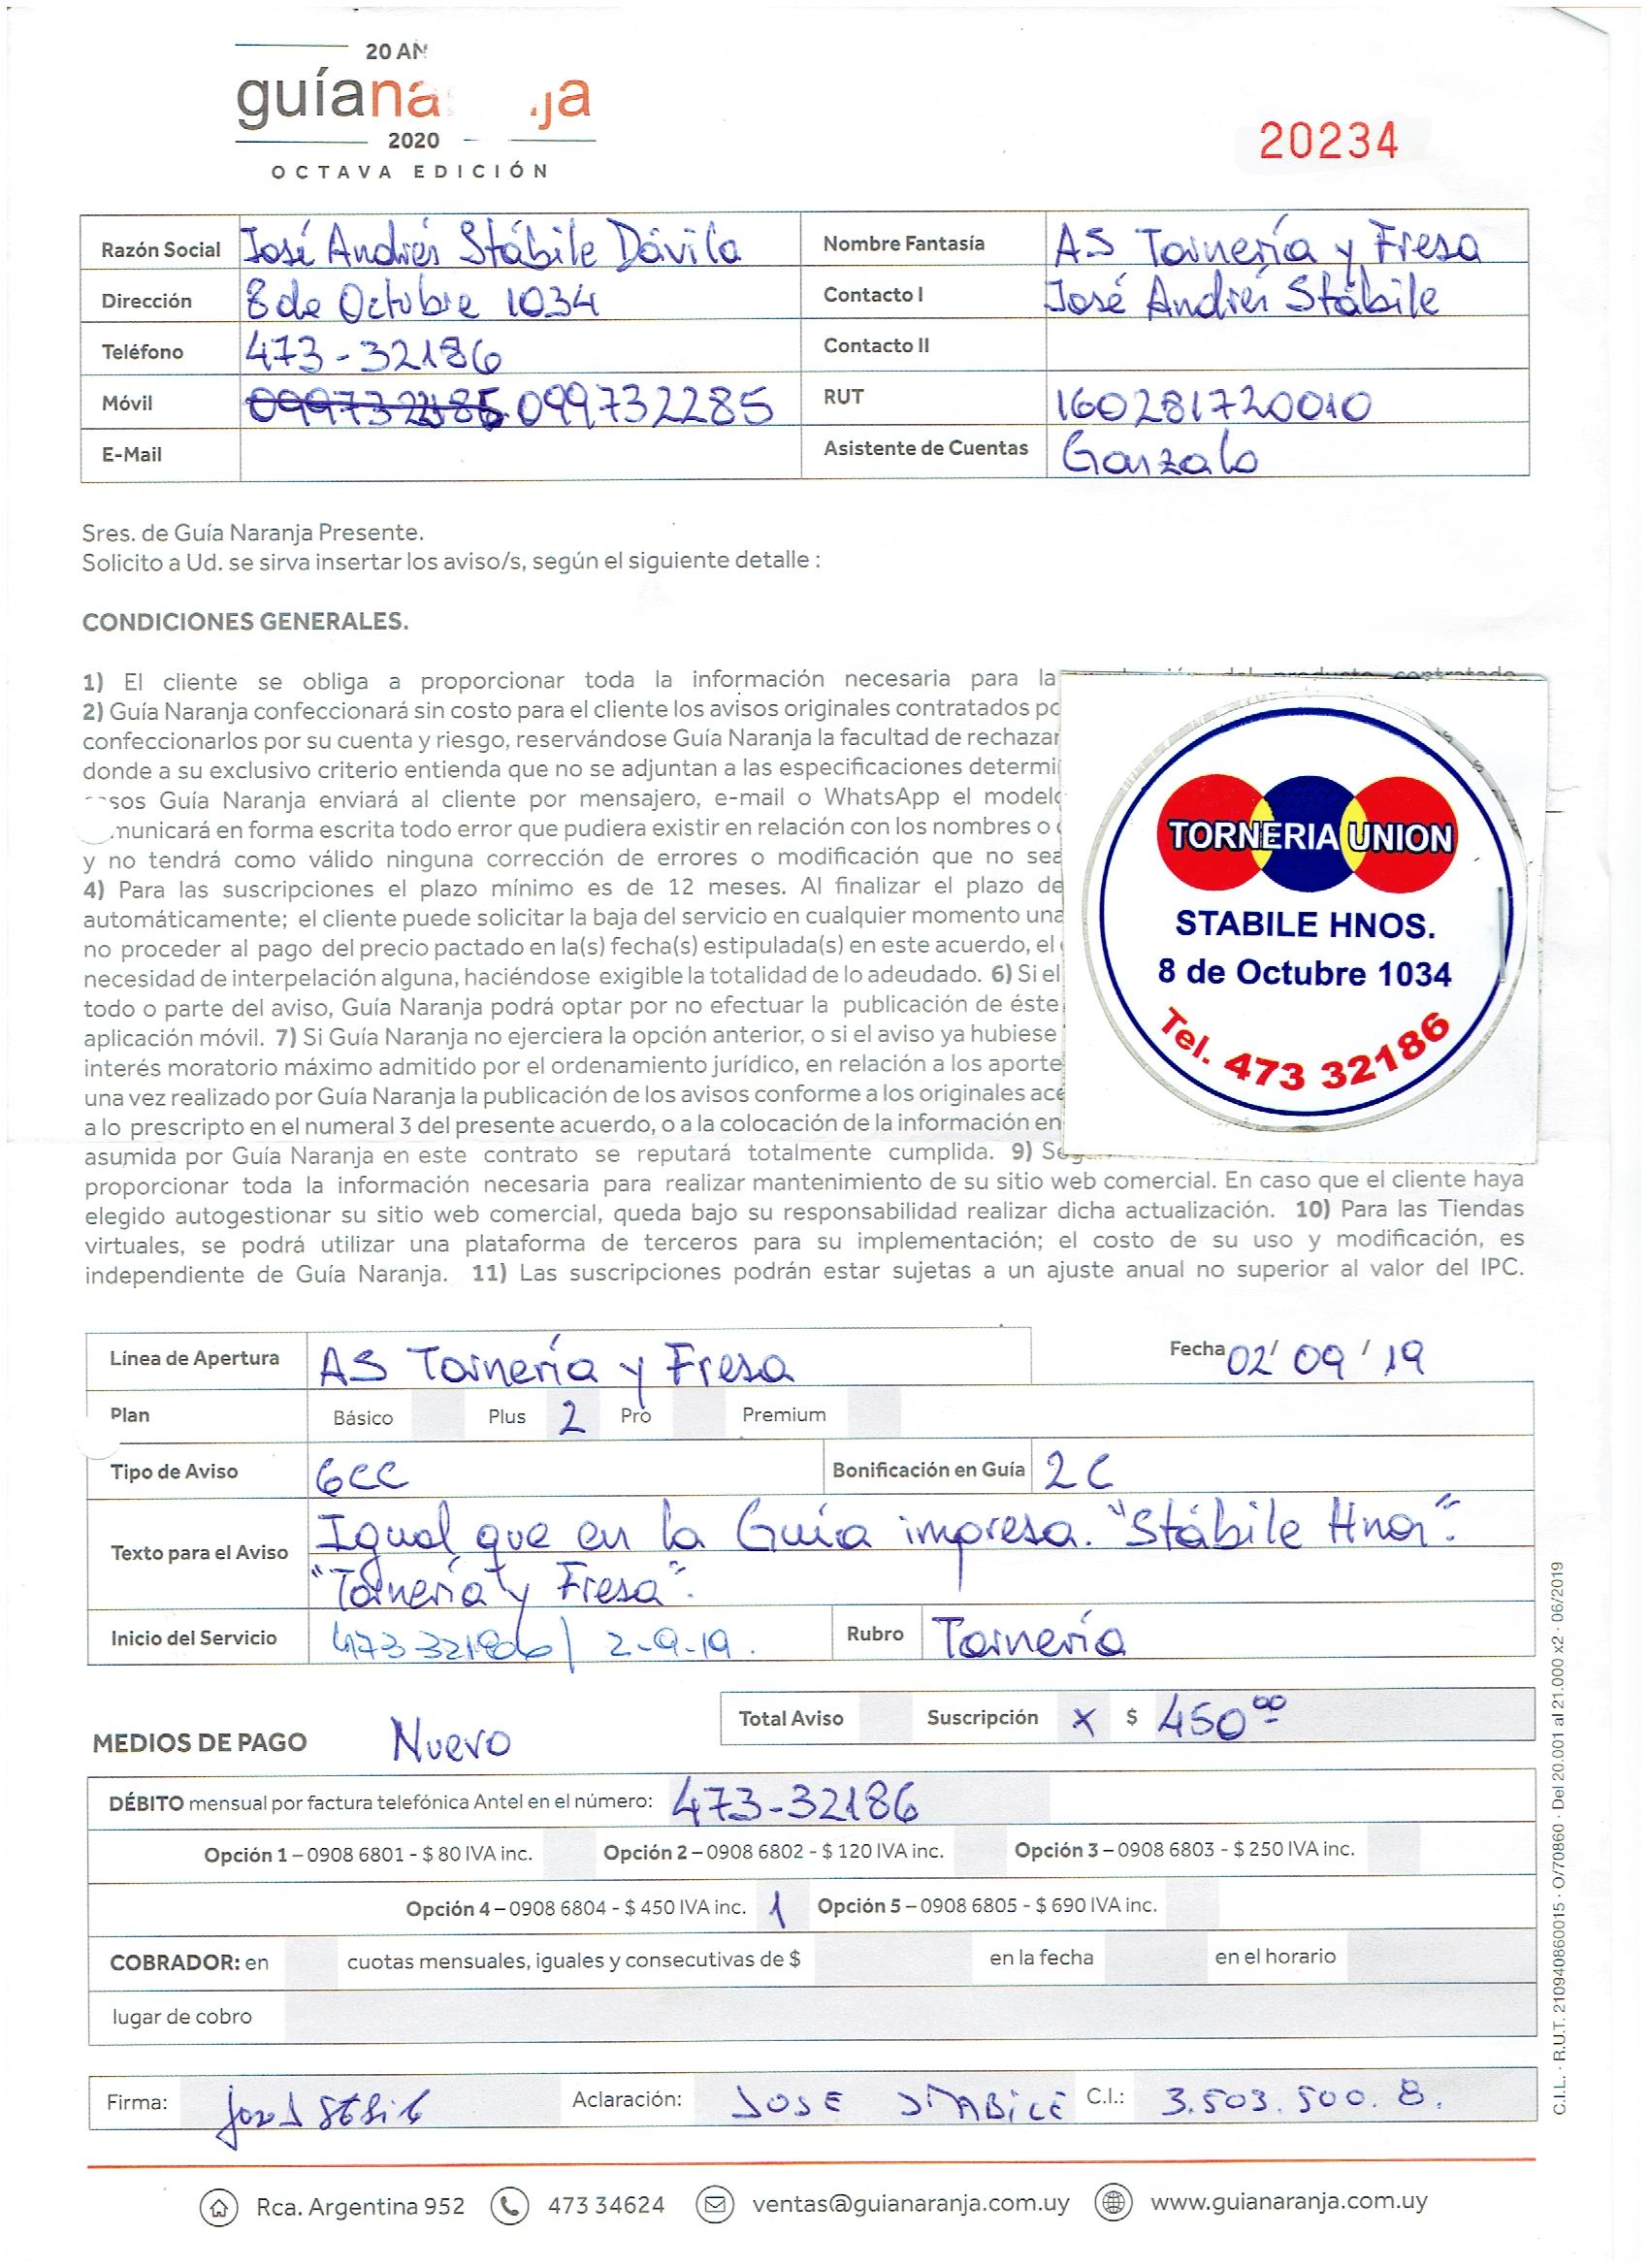 20 AÑ
guíana ja
2020
OCTAVA EDICIÓN
20234
Razón Social José Andrés Stábile Dávila Nombre Fantasía AS Tornería y Fresa
Dirección 8 de Octubre 1034 Contacto I José Andrés Stábile
Teléfono 473-32186 Contacto II
Móvil 099732285 RUT 160281720010
E-Mail Asistente de Cuentas Gonzalo
Sres. de Guía Naranja Presente.
Solicito a Ud. se sirva insertar los aviso/s, según el siguiente detalle :
CONDICIONES GENERALES.
1) El cliente se obliga a proporcionar toda la información necesaria para la producto contratado
2) Guía Naranja confeccionará sin costo para el cliente los avisos originales contratados po
confeccionarlos por su cuenta y riesgo, reservándose Guía Naranja la facultad de rechazar
donde a su exclusivo criterio entienda que no se adjuntan a las especificaciones determi
sos Guía Naranja enviará al cliente por mensajero, e-mail o WhatsApp el modelo
municará en forma escrita todo error que pudiera existir en relación con los nombres o
y no tendrá como válido ninguna corrección de errores o modificación que no sea
4) Para las suscripciones el plazo mínimo es de 12 meses. Al finalizar el plazo de
automáticamente; el cliente puede solicitar la baja del servicio en cualquier momento una
no proceder al pago del precio pactado en la(s) fecha(s) estipulada(s) en este acuerdo, el
necesidad de interpelación alguna, haciéndose exigible la totalidad de lo adeudado. 6) Si el
todo o parte del aviso, Guía Naranja podrá optar por no efectuar la publicación de éste
aplicación móvil. 7) Si Guía Naranja no ejerciera la opción anterior, o si el aviso ya hubiese
interés moratorio máximo admitido por el ordenamiento jurídico, en relación a los aporte
una vez realizado por Guía Naranja la publicación de los avisos conforme a los originales ace
a lo prescripto en el numeral 3 del presente acuerdo, o a la colocación de la información en
asumida por Guía Naranja en este contrato se reputará totalmente cumplida. 9)
proporcionar toda la información necesaria para realizar mantenimiento de su sitio web comercial. En caso que el cliente haya
elegido autogestionar su sitio web comercial, queda bajo su responsabilidad realizar dicha actualización. 10) Para las Tiendas
virtuales, se podrá utilizar una plataforma de terceros para su implementación; el costo de su uso y modificación, es
independiente de Guía Naranja. 11) Las suscripciones podrán estar sujetas a un ajuste anual no superior al valor del IPC.
TORNERIA UNION
STABILE HNOS.
8 de Octubre 1034
Tel. 473 32186
Línea de Apertura AS Tornería y Fresa Fecha 02/ 09 / 19
Plan Básico Plus 2 Pro Premium
Tipo de Aviso 6CC Bonificación en Guía 2C
Texto para el Aviso Igual que en la Guía impresa. "Stábile Hnos".
"Tornería y Fresa".
Inicio del Servicio 473 32186 / 2-9-19. Rubro Tornería
Total Aviso Suscripción x $ 450⁰⁰
MEDIOS DE PAGO Nuevo
DÉBITO mensual por factura telefónica Antel en el número: 473-32186
Opción 1 – 0908 6801 - $ 80 IVA inc. Opción 2 – 0908 6802 - $ 120 IVA inc. Opción 3 – 0908 6803 - $ 250 IVA inc.
Opción 4 – 0908 6804 - $ 450 IVA inc. 1 Opción 5 – 0908 6805 - $ 690 IVA inc.
COBRADOR: en cuotas mensuales, iguales y consecutivas de $ en la fecha en el horario
lugar de cobro
Firma: Aclaración: JOSE STABILE C.I.: 3.503.500.8.
Rca. Argentina 952 473 34624 ventas@guianaranja.com.uy www.guianaranja.com.uy
C.I.L. · R.U.T. 210940860015 · O/70860 · Del 20.001 al 21.000 x2 · 06/2019